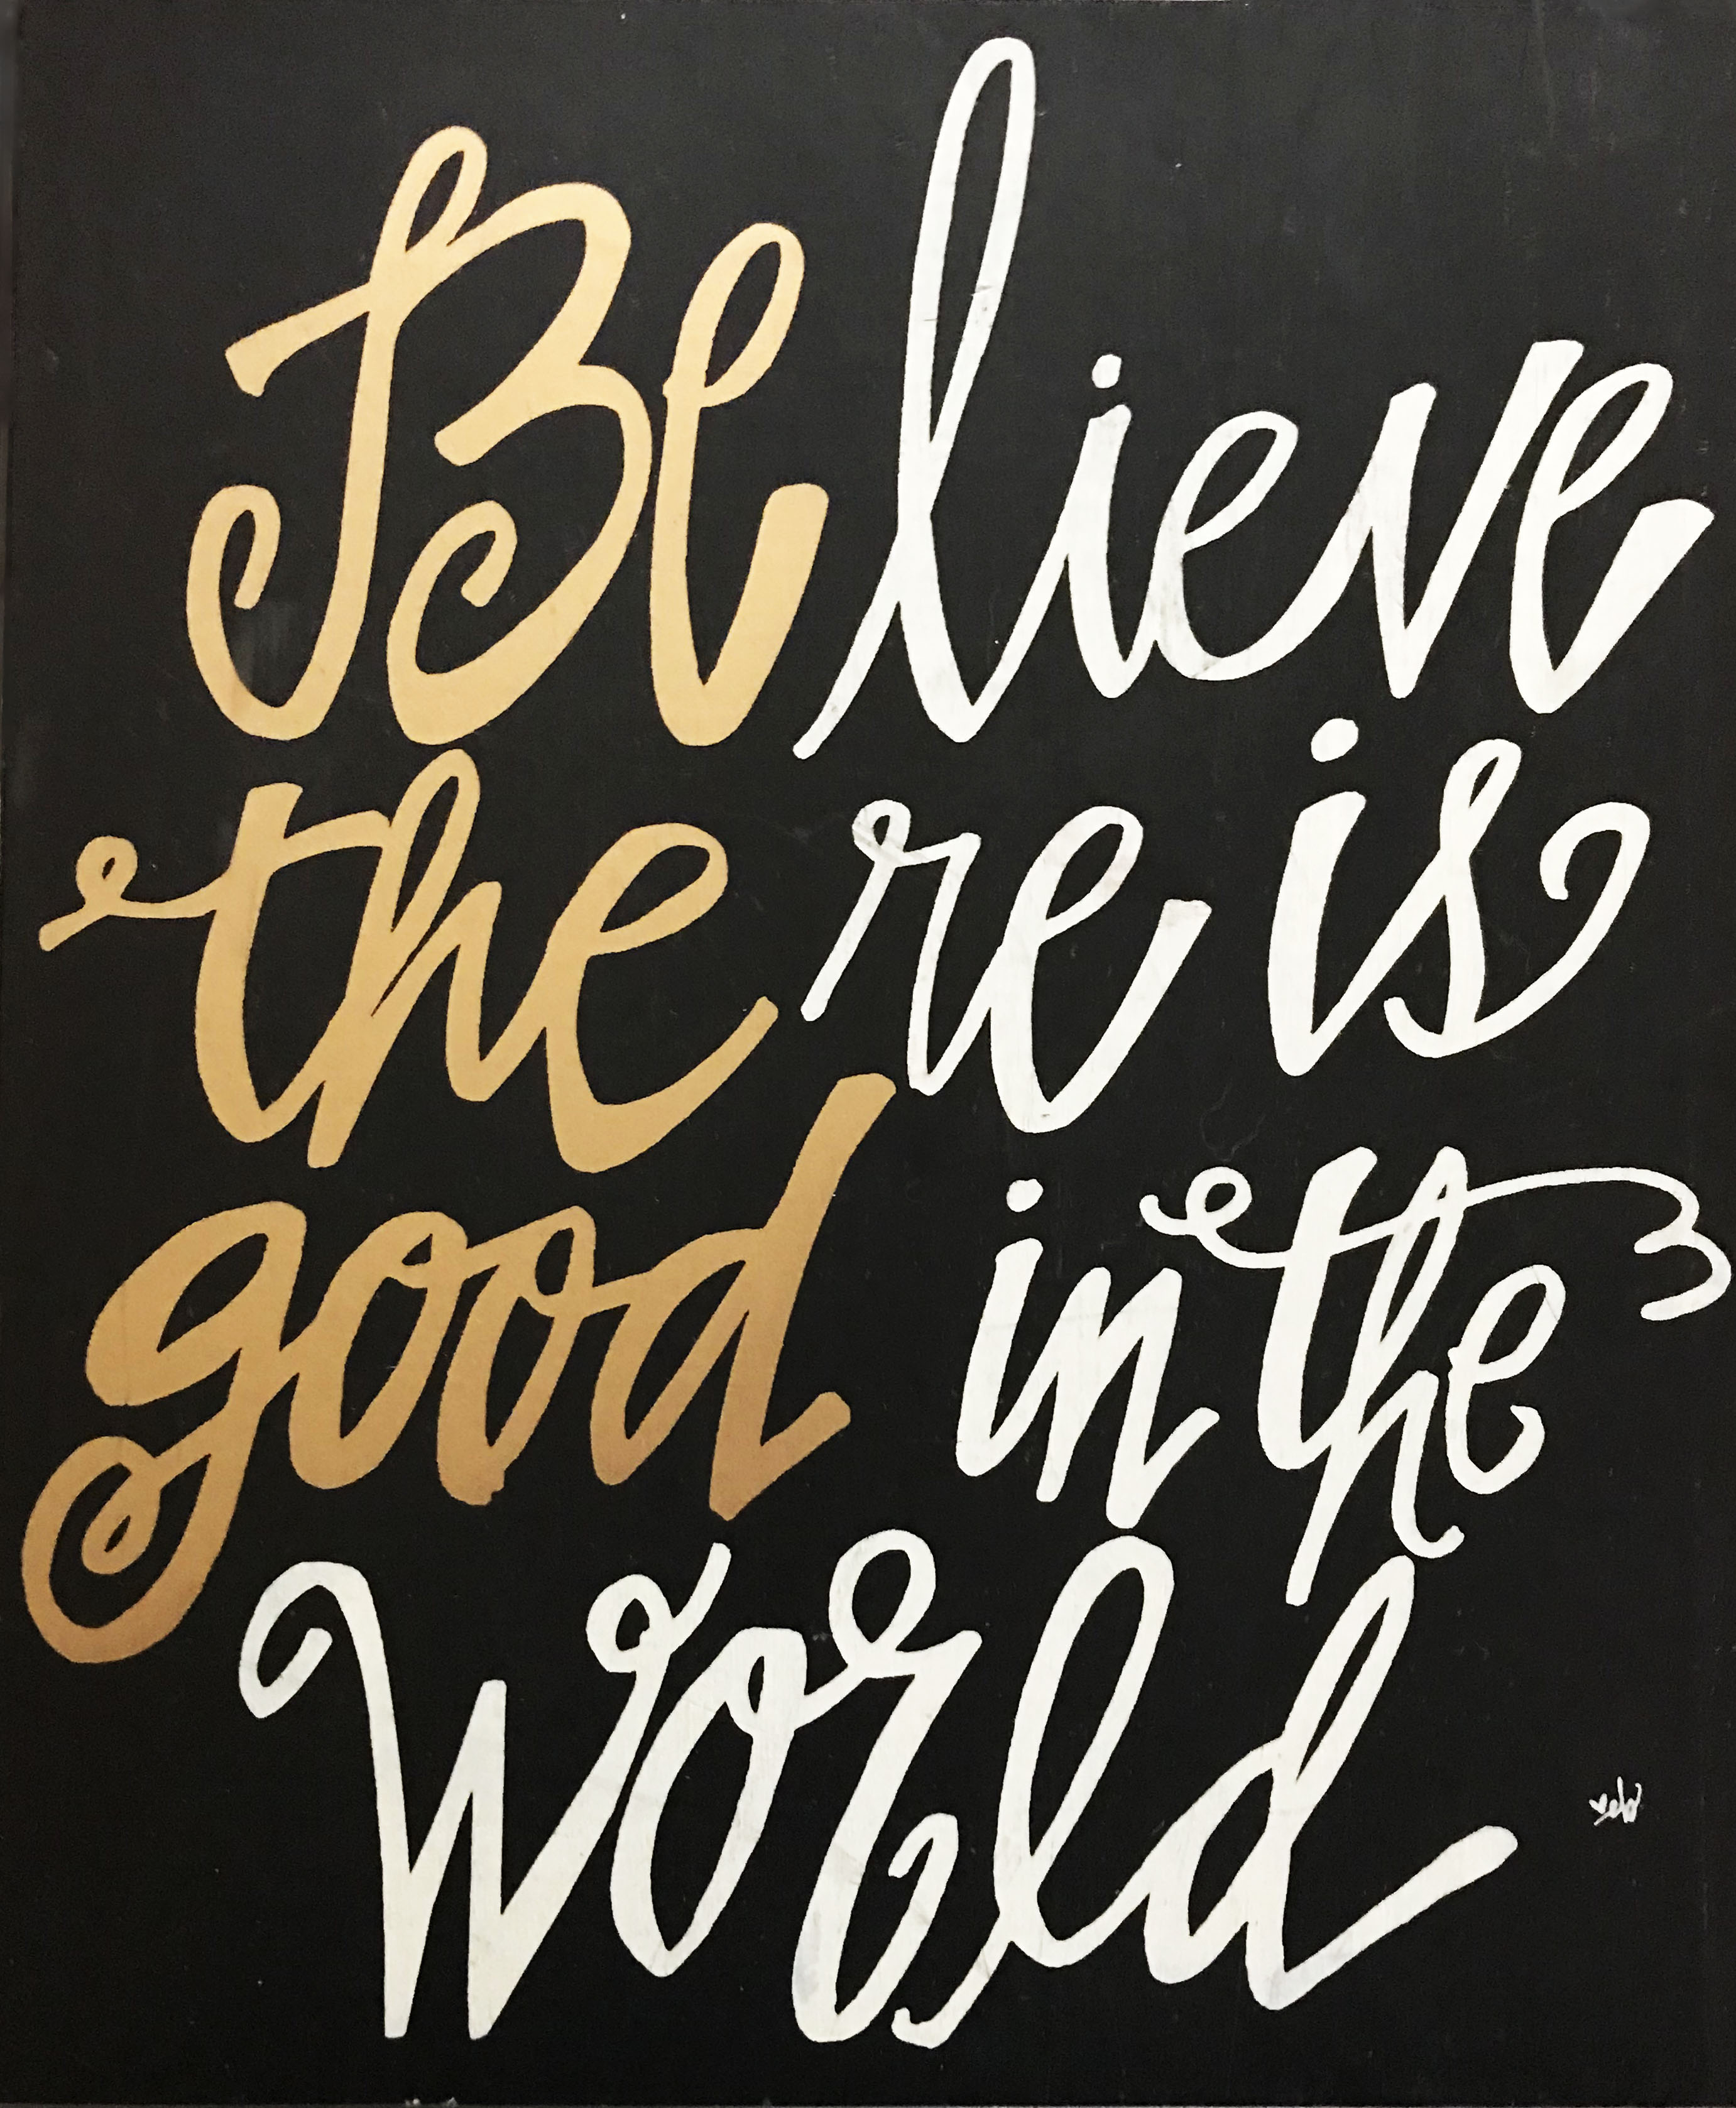 Believe
there is
good in the
World